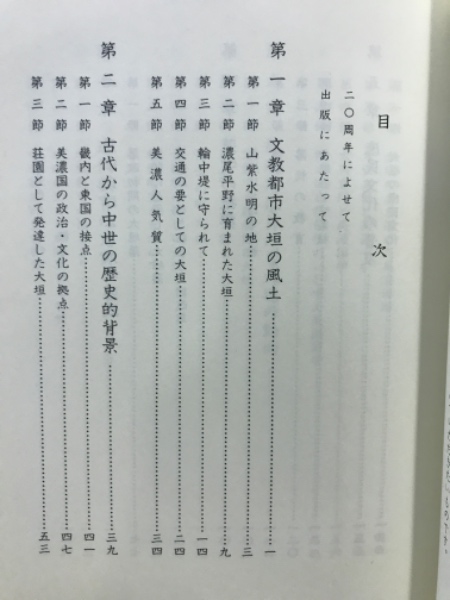 目次
二〇周年によせて
出版にあたって
第一章 文教都市大垣の風土……一
第一節 山紫水明の地……三
第二節 濃尾平野に育まれた大垣……九
第三節 輪中堤に守られて……一四
第四節 交通の要としての大垣……二四
第五節 美濃人気質……三四
第二章 古代から中世の歴史的背景……三九
第一節 畿内と東国の接点……四一
第二節 美濃国の政治・文化の拠点……四七
第三節 荘園として発達した大垣……五三